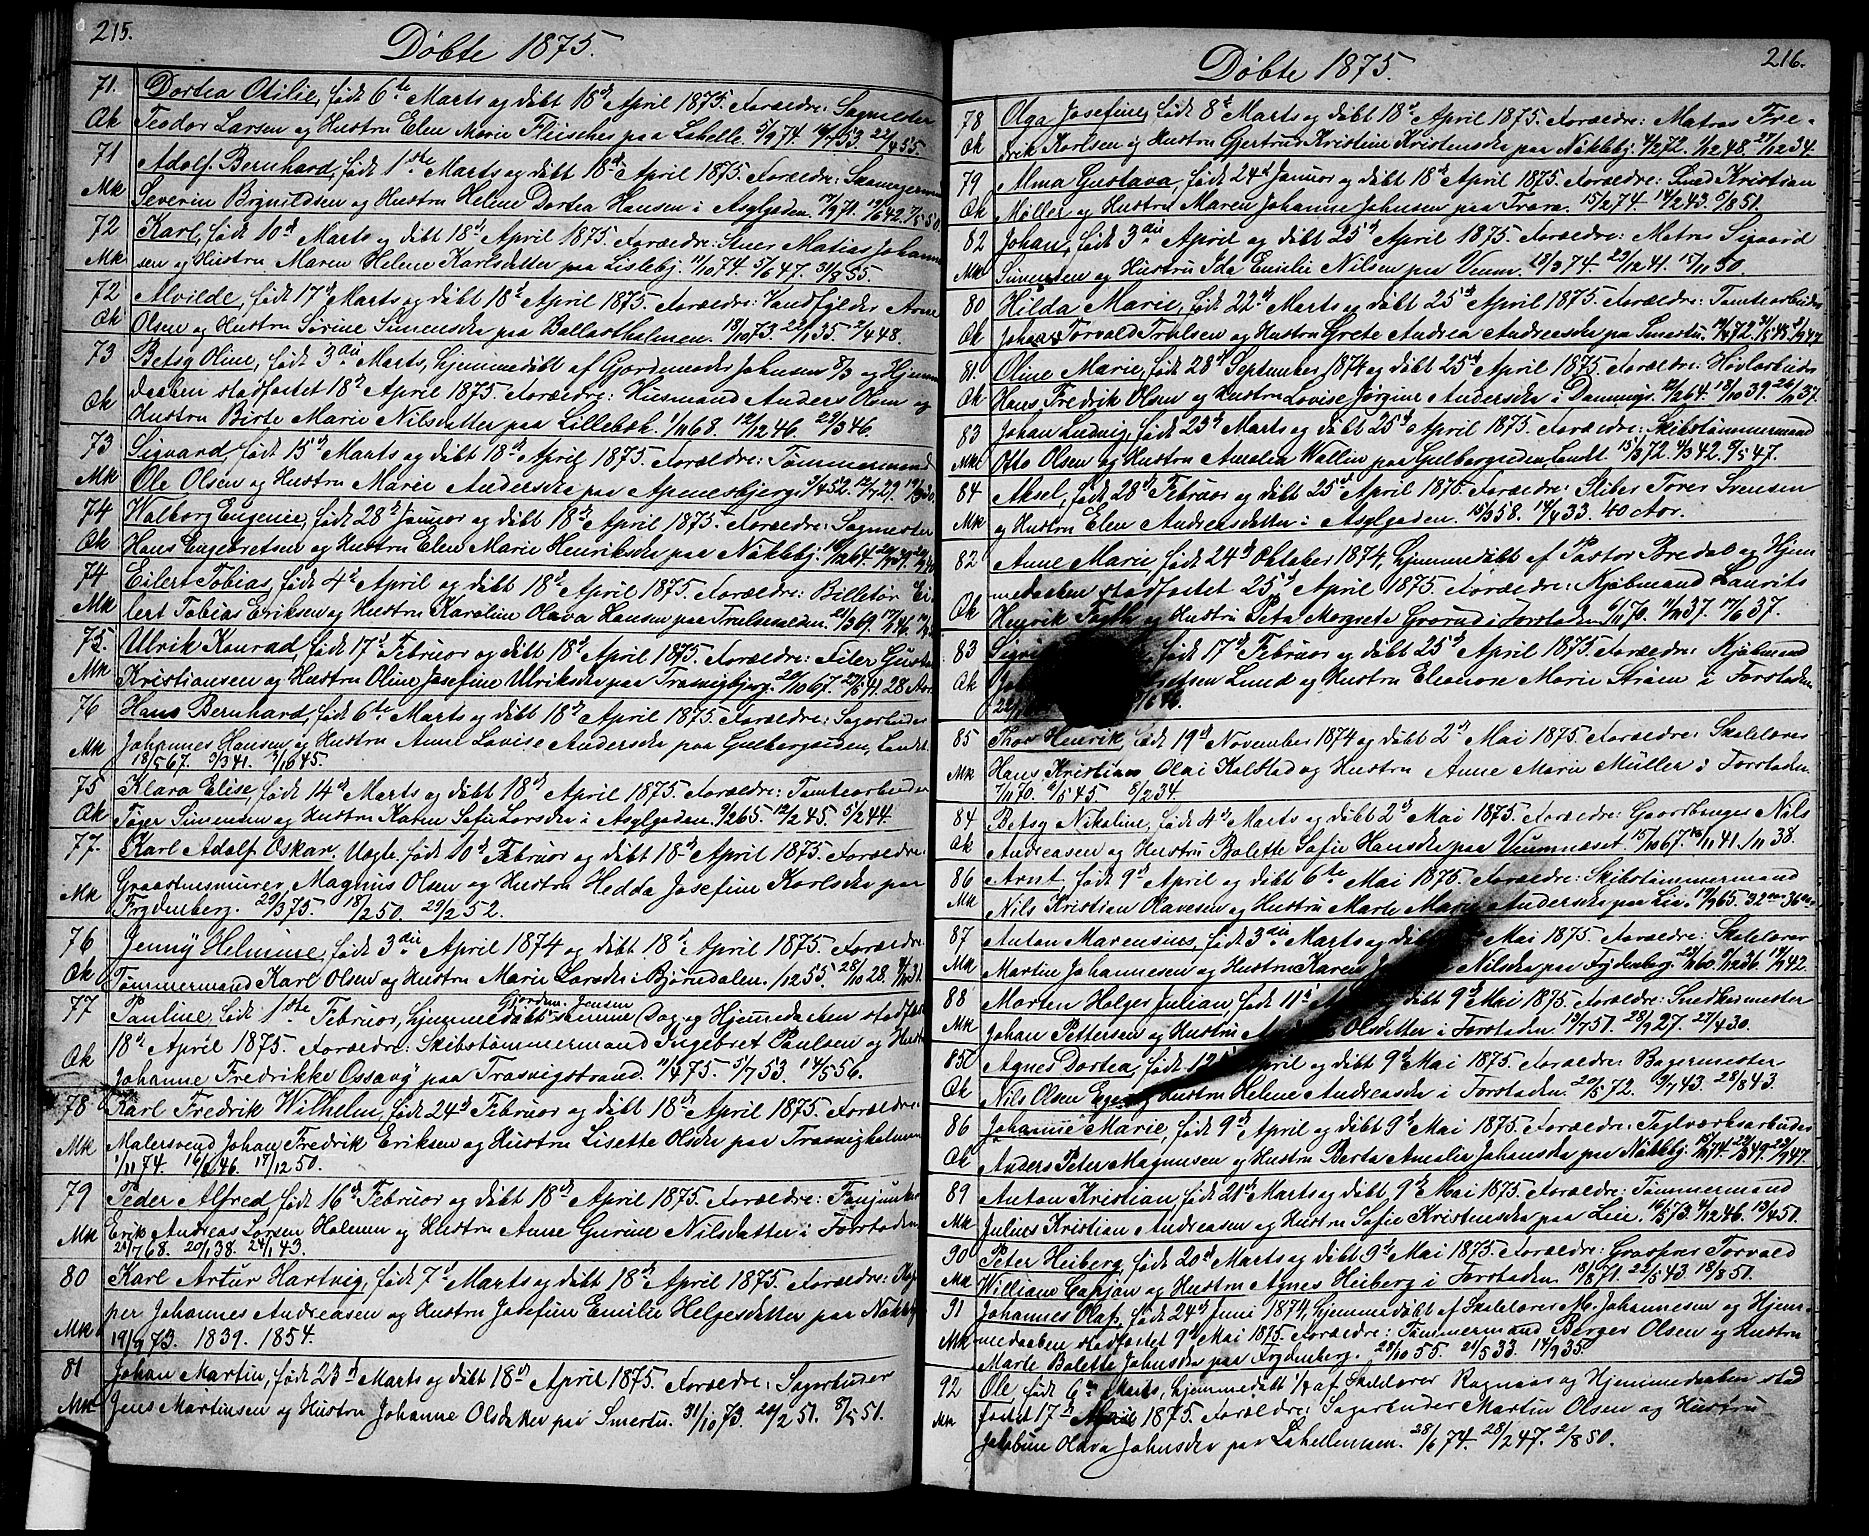 215.
Døbte 1875.
71. Dortea Otilie, født 6te Marts og døbt 18d April 1875. Forældre: Sagmester
Ok Teodor Larsen og Hustru Elen Marie Fleischer paa Lahelle. 5/9 74. 53. 22/4 55.
71 Adolf Bernhard, født 1ste Marts og døbt 18d April 1875. Forældre:
Mk Severin Brynildsen og Hustru Helene Dortea Hansen i Asylgaden. 17/9 71. 42. 7/5 58.
72 Karl, født 10d Marts og døbt 18d April 1875. Forældre: Matias Johann
Mk sen og Hustru Maren Helene Karlsdatter paa Lisleby. 11/10 74. 5/6 47. 31/3 55.
72 Alvilde, født 17d Marts og døbt 18d April 1875. Forældre: Vandfylder Arne
Ok Olsen og Hustru Sørine Simensdr paa Ballastholmen. 18/10 73. 22/1 35. 2/4 48.
73 Betsy Oline, født 3die Marts, hjemmedøbt af Gjordemoder Johnsen 8/3 og Hjemme
daaben stadfæstet 18d April 1875. Forældre: Husmand Anders Olsen og
Ok Hustru Birte Marie Nilsdatter paa Lillebæk. 1/11 68. 12/12 46. 29/3 46.
73 Sigvard, født 15d Marts og døbt 18d April 1875. Forældre: Tømmermand
Mk Ole Olsen og Hustru Marie Andersdr paa Apenesbjerg. 3/4 52. 12/7 29.
74 Walborg Eugenie, født 28d Januar og døbt 18d April 1875. Forældre: Sagmester
Ok Hans Engebretsen og Hustru Elen Marie Henriksdr paa Nøkleby.
74 Eilert Tobias, født 4d April og døbt 18d April 1875. Forældre: Billetør Ei-
Mk lert Tobias Eriksen og Hustru Karoline Olava Hansen paa Truelsmoen. 21/3 69.
75. Ulrik Konrad, født 17d Februar og døbt 18d April 1875. Forældre: Filer Gustav
Mk Kristiansen og Hustru Oline Josefine Ulriksdr paa Trosvigbjerg. 29/10 67. 27/6 41. 28 Aar
76 Hans Bernhard, født 6te Marts og døbt 18d April 1875. Forældre: Sagarbeider
Mk Johannes Hansen og Hustru Anne Lovise Andersdr paa Gulbergsiden, Landet
18/5 67. 9/3 41. 3/1 645.
75 Klara Elise, født 14d Marts og døbt 18d April 1875. Forældre: Tomtearbeider
Ok Tøger Simensen og Hustru Karen Sofie Larsdr i Asylgaden. 9/2 65. 12/2 45. 5/2 44.
77. Karl Adolf Oskar, Uægte, født 10d Februar og døbt 18d April 1875. Forældre:
Graastensmurer Magnus Olsen og Hustru Hedda Josefine Karlsdr paa
Mk Frydenberg. 29/3 75. 18/2 50. 29/2 52.
76 Jenny Helmine, født 3die April 1874 og døbt 18d April 1875. Forældre:
Ok Tømmermand Karl Olsen og Hustru Marie Larsdr i Bjørndalen. 1255. 28/10 28.
77 Pauline, født 1ste Februar, hjemmedøbt Gjordem. Jensen samme Dag og Hjemmedaaben stadfæst
18d April 1875. Forældre: Skibstømmermand Ingebret Paulsen og Hustru
Ok Johanne Fredrikke Ossavy paa Trosvigstrand. 11/4 75. 5/7 53. 14/5 56.
78 Karl Fredrik Wilhelm, født 24d Februar og døbt 18d April 1875. Forældre:
Mk Malersvend Johan Fredrik Eriksen og Hustru Lisette Olsdr paa Trosvigholmen
1/11 74. 16/6 46. 17/12 50.
79 Peder Alfred, født 16d Februar og døbt 18d April 1875. Forældre: Fanejunker
Mk Erik Andreas Larsen Holmen og Hustru Anne Gurine Nilsdatter i Forstaden
24/7 68. 20/1 38. 24/1 43.
80 Karl Artur Hartvig, født 7d Marts og døbt 18d April 1875. Forældre: Kap-
per Johannes Andreasen og Hustru Josefine Emilie Helgesdatter paa Nøkleby
Mk 19/9 73. 1839. 1854.
81 Johan Martin, født 23d Marts og døbt 18d April 1875. Forældre: Sagarbeider
Mk Jens Martinsen og Hustru Johanne Olsdr paa Smertu. 31/10 73. 20/2 51. 8/5 51.
216.
Døbte 1875.
78 Olga Josefine, født 8d Marts og døbt 18d April 1875. Forældre: Matros Fre-
Ok drik Karlsen og Hustru Gjertrud Kristine Kristensdr paa Nøkleby. 4/2 72. 1/12 48. 27/12 34.
79 Alma Gustava, født 24d Januar og døbt 18d April 1875. Forældre: Smed Kristian
Ok Møller og Hustru Maren Johanne Johnsen paa Trara. 15/2 74. 14/2 43. 5/8 51.
82 Johan, født 3die April og døbt 25d April 1875. Forældre: Matros Sigvard
Mk Simensen og Hustru Ida Emilie Nilsen paa Veum. 18/3 74. 23/12 41. 15/11 50.
80 Hilda Marie, født 22d Marts og døbt 25d April 1875. Forældre: Tomtearbeider
Ok Johan Torvald Trulsen og Hustru Grete Andrea Andreasdr paa Smertu.
81 Oline Marie, født 28d September 1874 og døbt 25d April 1875. Forældre: Høvlarbeider
Ok Hans Fredrik Olsen og Hustru Lovise Jørgine Andersdr i Damming. 64. 18/10 39. 37.
83 Johan Ludvig, født 23d Marts og døbt 25d April 1875. Forældre: Skibstømmermand
Mk Otto Olsen og Hustru Amalia Wallin paa Gulbergsiden, Landet. 15/3 72. 4/3 42. 9/5 47.
84 Aksel, født 28d Februar og døbt 25d April 1875. Forældre: Stiber Tores Svensen
Mk og Hustru Elen Andreasdatter i Asylgaden. 15/3 58. 14/4 33. 40 Aar.
82 Anne Marie, født 24d Oktober 1874, hjemmedøbt af Pastor Bredal og Hjem-
medaaben stadfæstet 25d April 1875. Forældre: Kjøbmand Laurits
Ok Henrik og Hustru Petra Margrete Grorud i Forstaden. 6/11 70. 11/11 37. 17/6 37.
83 født 17d Februar og døbt 25d April 1875. Forældre: Kjøbmand
Ok Lund og Hustru Eleonore Marie Strøm i Forstaden
85 Thor Henrik, født 19d November 1874 og døbt 2d Mai 1875. Forældre: Skolelærer
Mk Hans Kristian Olai Kalstad og Hustru Anne Marie Müller i Forstaden.
7/11 70. 4/5 45. 8/2 34.
84 Betsy Nikoline, født 4d Marts og døbt 2d Mai 1875. Forældre: Gaardbruger Nils
Ok Andreasen og Hustru Bolette Sofie Hansdr paa Veumnæset. 15/10 67. 41. 1/11 38.
86 Arnt, født 9d April og døbt 6te Mai 1875. Forældre: Skibstømmermand
Mk Nils Kristian Olavesen og Hustru Marte Marie Andersdr paa Lie. 17/9 65. 32 Aar 36 Aar
87 Anton Marensius, født 3die Marts og døbt Mai 1875. Forældre: Skolelærer
Mk Martin Johannesen og Hustru Karen Nilsdr paa Frydenberg. 60. 36. 42.
88 Morten Holger Julian, født 11d og døbt 9d Mai 1875. Forældre: Snedkermester
Mk Johan Pettersen og Hustru Olsdatter i Forstaden. 19/7 51. 28/9 27. 27/4 30.
85 Agnes Dortea, født 12d April og døbt 9d Mai 1875. Forældre: Bagermester
Ok Nils Olsen og Hustru Helene Andreasdr i Forstaden. 20/5 72. 9/7 43. 28/8 43.
86 Johanne Marie, født 9d April og døbt 9d Mai 1875. Forældre: Teglværksarbeider
Ok Anders Peter Magnusen og Hustru Berta Amalie Johansdr paa Nøkleby. 74. 49. 47.
89 Anton Kristian, født 21d Marts og døbt 9d Mai 1875. Forældre: Tømmermand
Mk Julius Kristian Andreasen og Hustru Sofie Kristensdr paa Lie. 73. 46. 19/4 51.
90 Peter Heiberg, født 20d Marts og døbt 9d Mai 1875. Forældre: Torvald
Mk William Capjon og Hustru Agnes Heiberg i Forstaden. 18/8 71. 22/5 43. 18/8 51.
91 Johannes Olaf, født 24d Juni 1874, hjemmedøbt af Skolelærer M. Johannesen og Hjem-
Mk medaaben stadfæstet 9d Mai 1875. Forældre: Tømmermand Berger Olsen og Hustru
Marte Bolette Johnsdr paa Frydenberg. 28/10 55. 29/5 33. 14/9 35.
92 Ole, født 6te Marts, hjemmedøbt af Skolelærer Ragnaas og Hjemmedaaben stad
Mk fæstet 17d 1875. Forældre: Sagarbeider Martin Olsen og Hustru
Jakobine Olava Johnsdr paa Lahellemoen. 28/6 74. 28/2 47. 2/8 50.